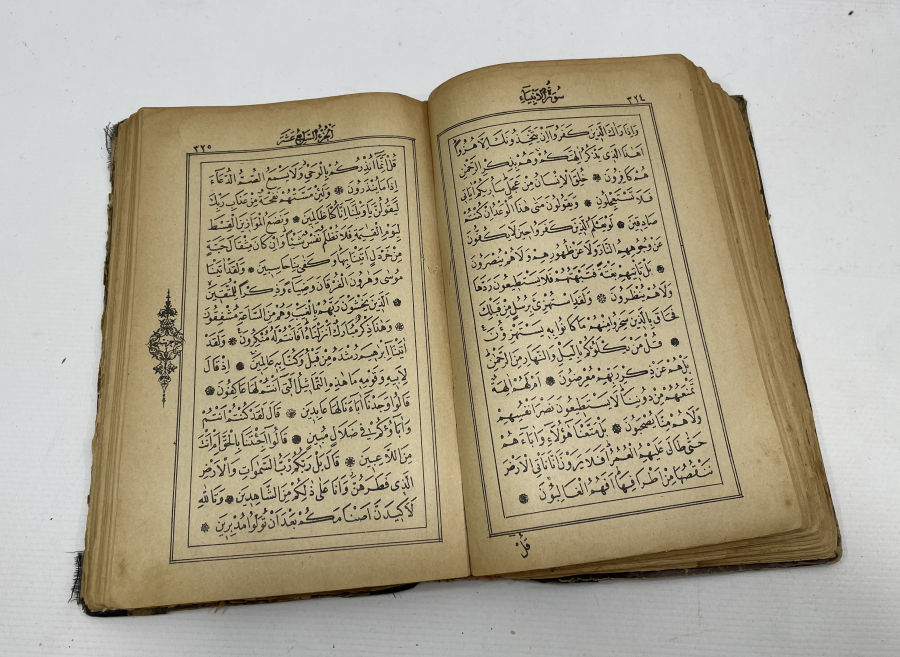 سُورَةُ الْاَنْبِيَاءِ ٣٢٤
وَاِذَا رَاٰكَ الَّذِينَ كَفَرُوا اِنْ يَتَّخِذُونَكَ اِلَّا هُزُوًا
اَهٰذَا الَّذِي يَذْكُرُ اٰلِهَتَكُمْ وَهُمْ بِذِكْرِ الرَّحْمٰنِ
هُمْ كَافِرُونَ ❋ خُلِقَ الْاِنْسَانُ مِنْ عَجَلٍ سَاُرِيكُمْ اٰيَاتِي
فَلَا تَسْتَعْجِلُونِ ❋ وَيَقُولُونَ مَتٰى هٰذَا الْوَعْدُ اِنْ كُنْتُمْ
صَادِقِينَ ❋ لَوْ يَعْلَمُ الَّذِينَ كَفَرُوا حِينَ لَا يَكُفُّونَ
عَنْ وُجُوهِهِمُ النَّارَ وَلَا عَنْ ظُهُورِهِمْ وَلَا هُمْ يُنْصَرُونَ
❋ بَلْ تَأْتِيهِمْ بَغْتَةً فَتَبْهَتُهُمْ فَلَا يَسْتَطِيعُونَ رَدَّهَا
وَلَا هُمْ يُنْظَرُونَ ❋ وَلَقَدِ اسْتُهْزِئَ بِرُسُلٍ مِنْ قَبْلِكَ
فَحَاقَ بِالَّذِينَ سَخِرُوا مِنْهُمْ مَا كَانُوا بِهِ يَسْتَهْزِؤُنَ
❋ قُلْ مَنْ يَكْلَؤُكُمْ بِالَّيْلِ وَالنَّهَارِ مِنَ الرَّحْمٰنِ
بَلْ هُمْ عَنْ ذِكْرِ رَبِّهِمْ مُعْرِضُونَ ❋ اَمْ لَهُمْ اٰلِهَةٌ
تَمْنَعُهُمْ مِنْ دُونِنَا لَا يَسْتَطِيعُونَ نَصْرَ اَنْفُسِهِمْ
وَلَا هُمْ مِنَّا يُصْحَبُونَ ❋ بَلْ مَتَّعْنَا هٰؤُلَاءِ وَاٰبَاءَهُمْ
حَتّٰى طَالَ عَلَيْهِمُ الْعُمُرُ اَفَلَا يَرَوْنَ اَنَّا نَأْتِي الْاَرْضَ
نَنْقُصُهَا مِنْ اَطْرَافِهَا اَفَهُمُ الْغَالِبُونَ ❋
قُلْ
اَلْجُزْءُ السَّابِعُ عَشَرَ ٣٢٥
قُلْ اِنَّمَا اُنْذِرُكُمْ بِالْوَحْيِ وَلَا يَسْمَعُ الصُّمُّ الدُّعَاءَ
اِذَا مَا يُنْذَرُونَ ❋ وَلَئِنْ مَسَّتْهُمْ نَفْحَةٌ مِنْ عَذَابِ رَبِّكَ
لَيَقُولُنَّ يَا وَيْلَنَا اِنَّا كُنَّا ظَالِمِينَ ❋ وَنَضَعُ الْمَوَازِينَ الْقِسْطَ
لِيَوْمِ الْقِيٰمَةِ فَلَا تُظْلَمُ نَفْسٌ شَيْئًا وَاِنْ كَانَ مِثْقَالَ حَبَّةٍ
مِنْ خَرْدَلٍ اَتَيْنَا بِهَا وَكَفٰى بِنَا حَاسِبِينَ ❋ وَلَقَدْ اٰتَيْنَا
مُوسٰى وَهٰرُونَ الْفُرْقَانَ وَضِيَاءً وَذِكْرًا لِلْمُتَّقِينَ
❋ اَلَّذِينَ يَخْشَوْنَ رَبَّهُمْ بِالْغَيْبِ وَهُمْ مِنَ السَّاعَةِ مُشْفِقُونَ
❋ وَهٰذَا ذِكْرٌ مُبَارَكٌ اَنْزَلْنَاهُ اَفَاَنْتُمْ لَهُ مُنْكِرُونَ ❋ وَلَقَدْ
اٰتَيْنَا اِبْرٰهِيمَ رُشْدَهُ مِنْ قَبْلُ وَكُنَّا بِهِ عَالِمِينَ ❋ اِذْ قَالَ
لِاَبِيهِ وَقَوْمِهِ مَا هٰذِهِ التَّمَاثِيلُ الَّتِي اَنْتُمْ لَهَا عَاكِفُونَ ❋
قَالُوا وَجَدْنَا اٰبَاءَنَا لَهَا عَابِدِينَ ❋ قَالَ لَقَدْ كُنْتُمْ اَنْتُمْ
وَاٰبَاؤُكُمْ فِي ضَلَالٍ مُبِينٍ ❋ قَالُوا اَجِئْتَنَا بِالْحَقِّ اَمْ اَنْتَ
مِنَ اللَّاعِبِينَ ❋ قَالَ بَلْ رَبُّكُمْ رَبُّ السَّمٰوَاتِ وَالْاَرْضِ
الَّذِي فَطَرَهُنَّ وَاَنَا عَلٰى ذٰلِكُمْ مِنَ الشَّاهِدِينَ ❋ وَتَاللّٰهِ
لَاَكِيدَنَّ اَصْنَامَكُمْ بَعْدَ اَنْ تُوَلُّوا مُدْبِرِينَ ❋